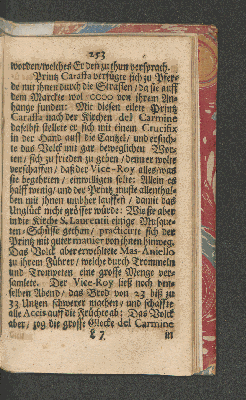 253
worden/welches Er den zu thun versprach.
Printz Caraffa verfügte sich zu Pfer-
de mit ihnen durch die Strassen / da sie auff
dem Marckte wol 6000 von ihrem An-
hange funden: Mit diesen eilete Printz
Caraffa nach der Kirchen del Carmine
daselbst stellete er sich mit einem Crucifix
in der Hand auff die Cantzel / und ersuch-
te das Volck mit gar beweglichen Wor-
ten / sich zu frieden zu geben / denn er wolte
verschaffen / daß der Vice-Roy alles / was
sie begehrten / einwilligen solte: Allein es
halff wenig / und der Printz muste allenthal-
ben mit ihnen umbher lauffen / damit das
Unglück nicht grösser würde: Wie sie aber
in die Kirche S. Laurentii einige Musque-
ten-Schüsse gethan / practicirte sich der
Printz mit guter manier von ihnen hinweg.
Das Volck aber erwehlete Mas-Aniello
zu ihrem Führer / welche durch Trommeln
und Trompeten eine grosse Menge ver-
samlete. Der Vice-Roy ließ noch den-
selben Abend / das Brod von 23 biß zu
33 Untzen schwerer machen / und schaffte
alle Accis auff die Früchte ab: Das Volck
aber / zog die grosse Glocke del Carmine
L 7 in